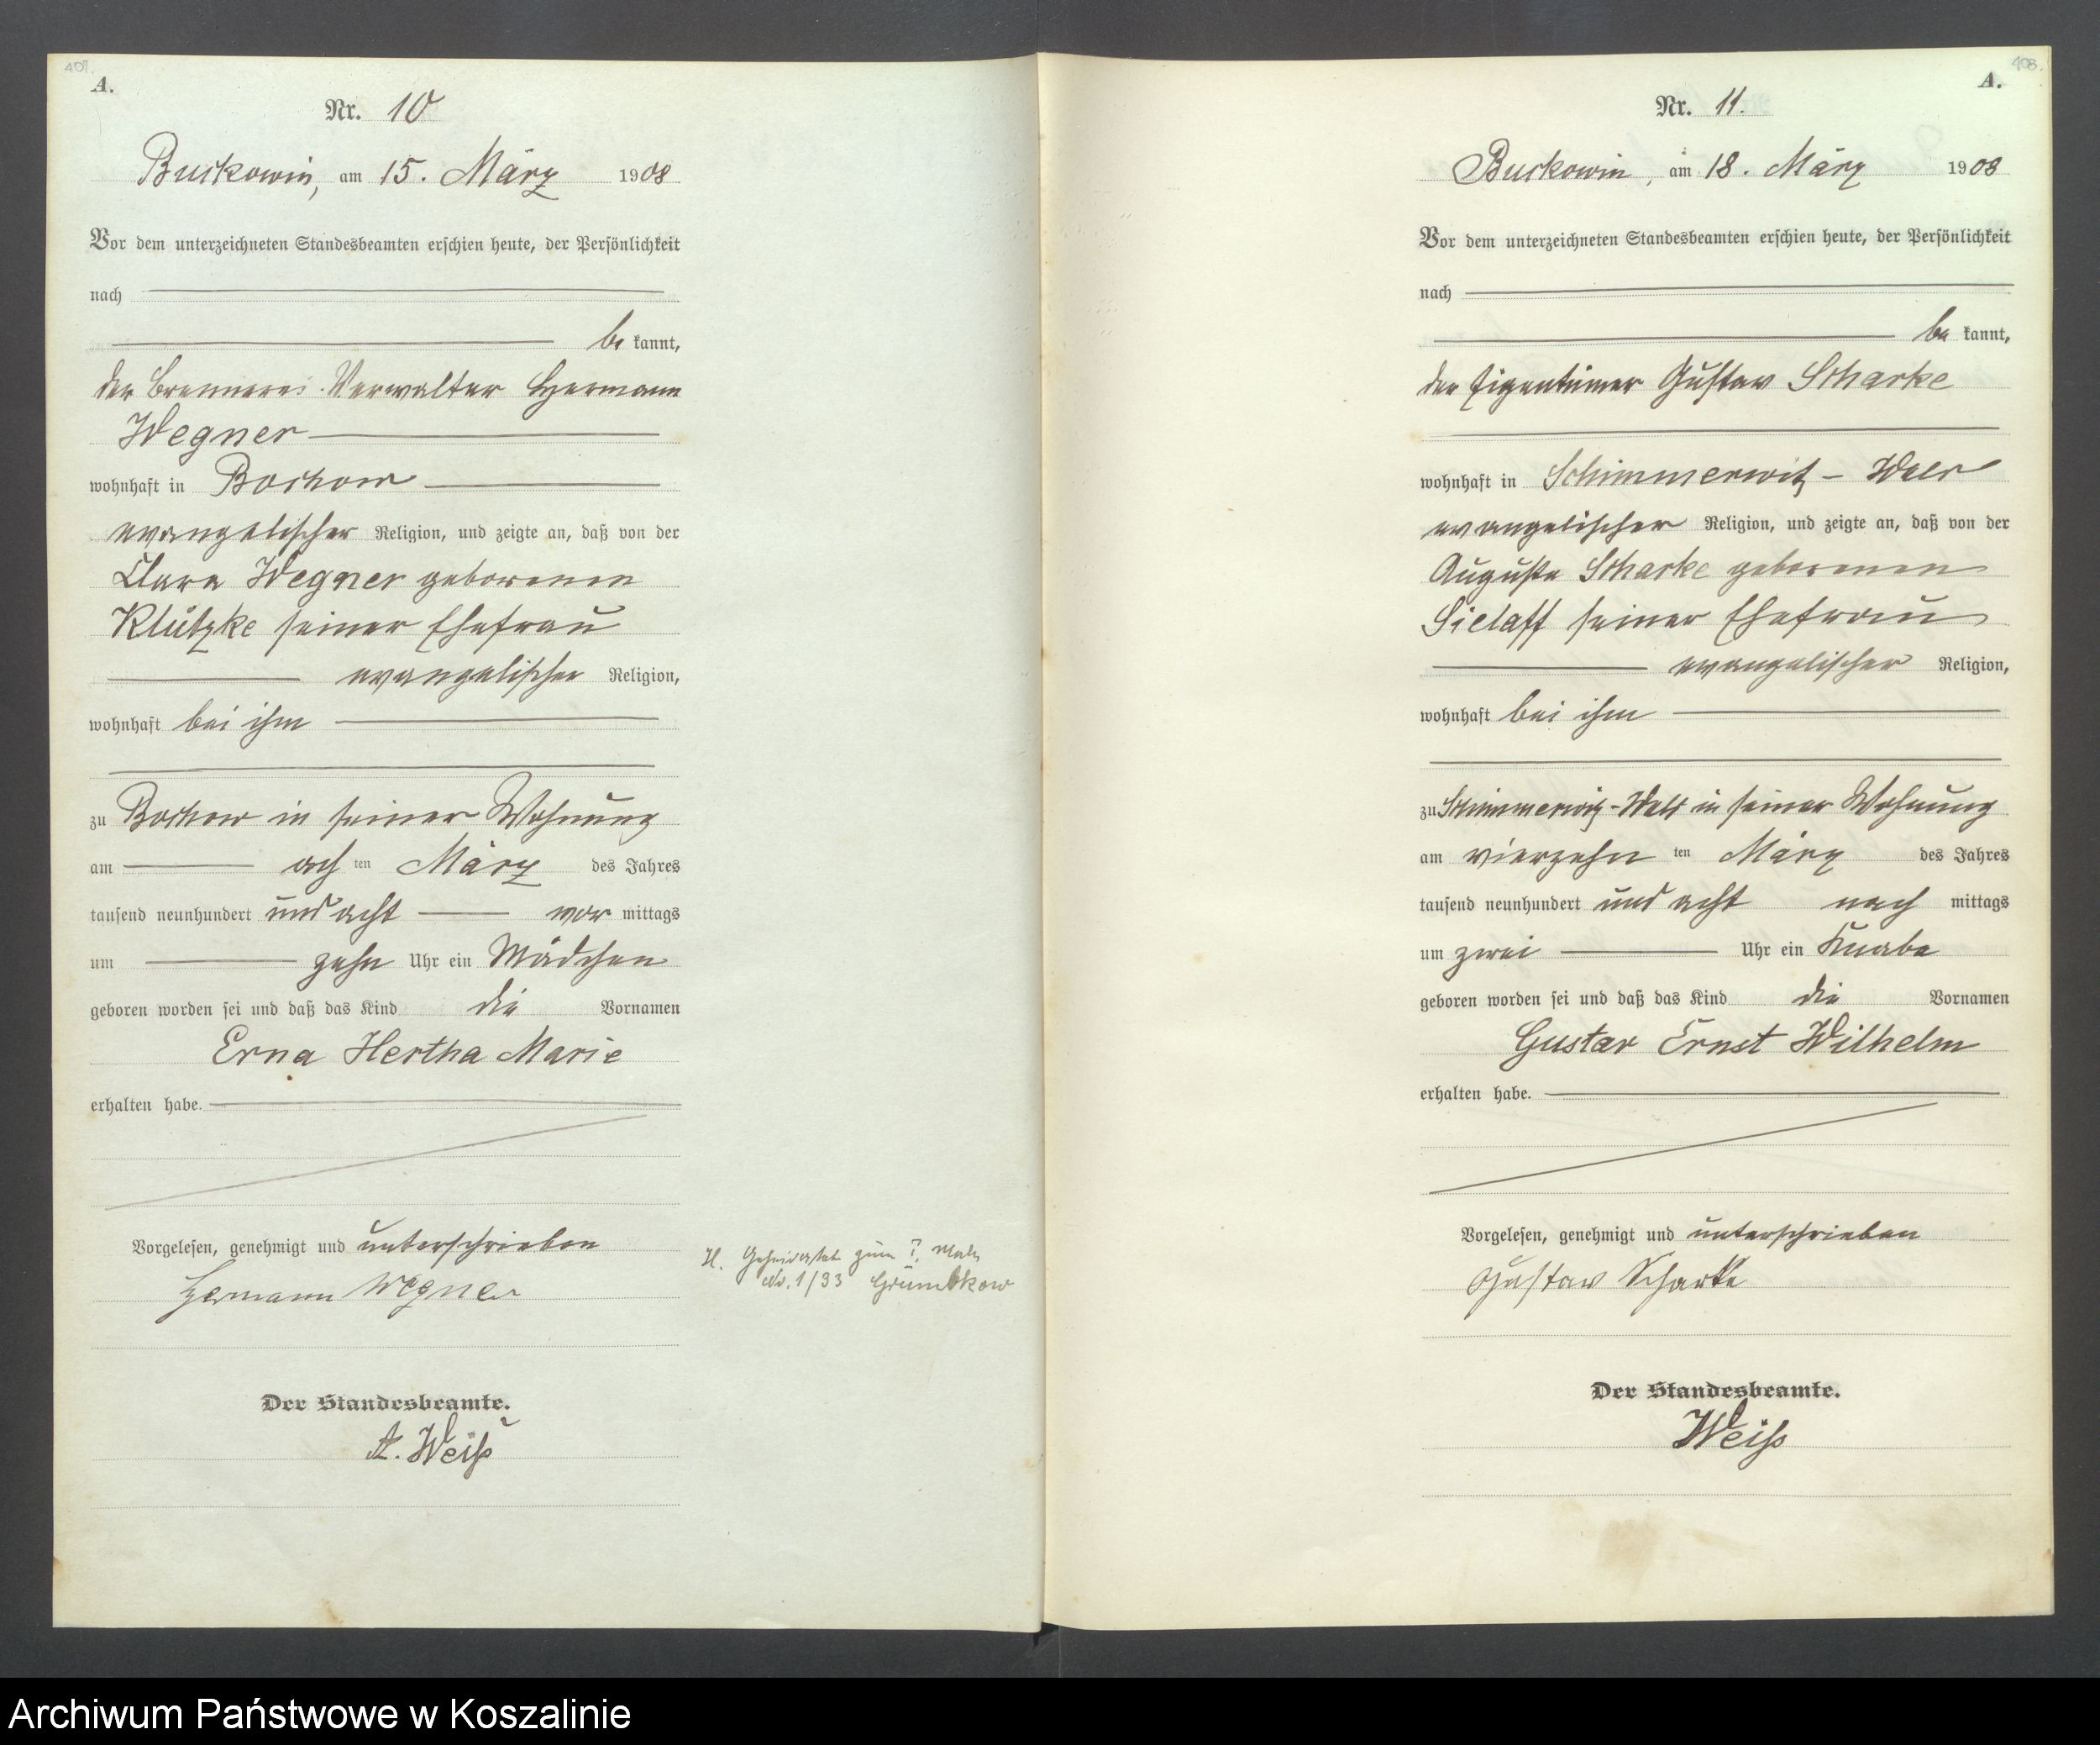 407.
A.
Nr. 10
Buckowin, am 15. März 1908
Vor dem unterzeichneten Standesbeamten erschien heute, der Persönlichkeit
nach
be kannt,
der Brennerei-Verwalter Hermann
Wegner
wohnhaft in Bochow
evangelischer Religion, und zeigte an, daß von der
Clara Wegner geborenen
Klützke seiner Ehefrau
evangelischer Religion,
wohnhaft bei ihm
zu Bochow in seiner Wohnung
am ach ten März des Jahres
tausend neunhundert und acht vor mittags
um zehn Uhr ein Mädchen
geboren worden sei und daß das Kind die Vornamen
Erna Hertha Marie
erhalten habe.
Vorgelesen, genehmigt und unterschrieben
Hermann Wegner
Der Standesbeamte.
A. Weiß
H. Geheiratet zum ?. Male
Nr. 1/33 Grumbkow
408.
A.
Nr. 11.
Buckowin, am 18. März 1908
Vor dem unterzeichneten Standesbeamten erschien heute, der Persönlichkeit
nach
be kannt,
der Eigentümer Gustav Scharke
wohnhaft in Schimmerwitz-
evangelischer Religion, und zeigte an, daß von der
Auguste Scharke geborenen
Sielaff seiner Ehefrau
evangelischer Religion,
wohnhaft bei ihm
zu Schimmerwitz- in seiner Wohnung
am vierzehn ten März des Jahres
tausend neunhundert und acht nach mittags
um zwei Uhr ein Knabe
geboren worden sei und daß das Kind die Vornamen
Gustav Ernst Wilhelm
erhalten habe.
Vorgelesen, genehmigt und unterschrieben
Gustav Scharke
Der Standesbeamte.
Weiß
Archiwum Państwowe w Koszalinie